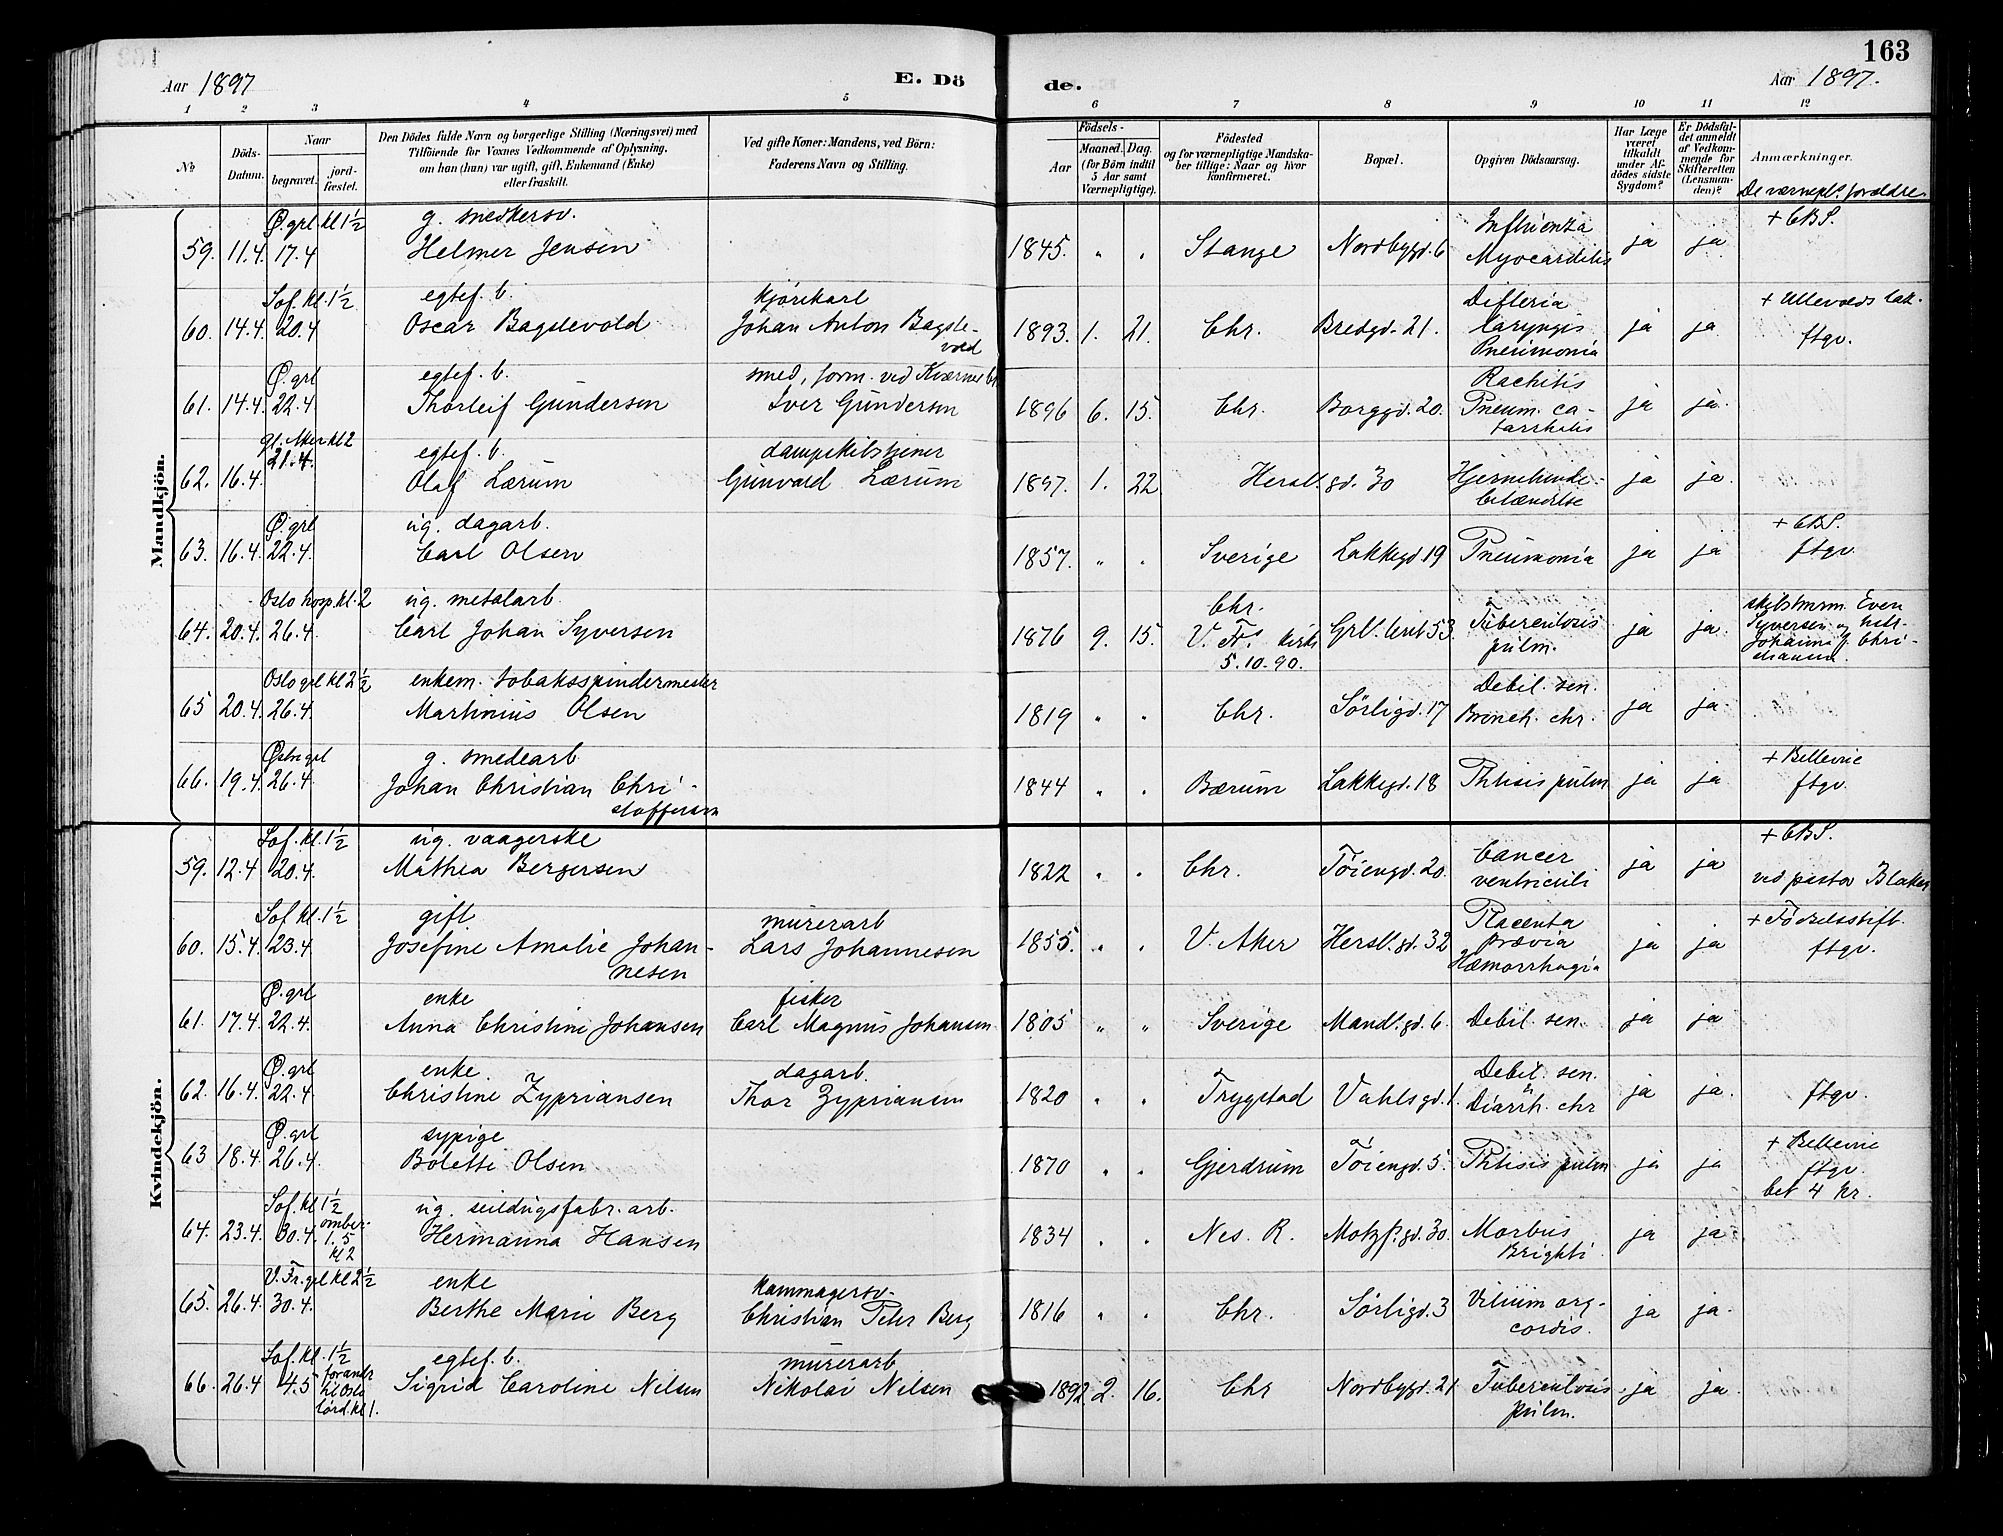 163
Aar 1897 E. Dö de. Aar 1897.
1 2 3 4 5 6 7 8 9 10 11 12
№ Döds-Datum. Naar begravet. jord-fæstet. Den Dödes fulde Navn og borgerlige Stilling (Næringsvei) med Tilföiende for Voxnes Vedkommende af Oplysning, om han (hun) var ugift, gift, Enkemand (Enke) eller fraskilt. Ved gifte Koner: Mandens, ved Börn: Faderens Navn og Stilling. Aar Födsels- Maaned. Dag. (for Börn indtil 5 Aar samt Værnepligtige). Födested og for værnepligtige Mandskaber tillige: Naar og hvor konfirmeret. Bopæl. Opgiven Dödsaarsag. Har Læge været tilkaldt under Afdödes sidste Sygdom? Er Dödsfaldet anmeldt af Vedkommende for Skifteretten (Lensmanden)? Anmærkninger.
De værnepl. forældre
Mandkjön.
Ø. grl kl 1½ g. snedkersv. Influenza + CBS.
59. 11.4. 17.4 Helmer Jensen 1845. " " Stange Nordbygd. 6 Myocarditis ja ja
Sof. kl. 1½ egtef. b. kjørekarl Difteria + Ullevolds
60. 14.4. 20.4 Oscar Bagstevold Johan Anton Bagste-vold 1893. 1. 21. Chr. Bredgd. 21. laryngis Pneumonia ja ja ftgv.
Ø. grl egtef. b. smed, form. ved Kværner Rachitis
61. 14.4. 22.4. Thorleif Gundersen Iver Gundersen 1896 6. 15. Chr. Borggd. 20. Pneum. ca-tarrhalis ja ja.
gl. Aker kl 2 21.4. egtef. b. dampskibstjener
62. 16.4. Olaf Lærum Gunvald Lærum 1897. 1. 22 Hersl. gd. 30 Hjernehinde-betændelse ja ja.
Ø. grl ug. dagarb. + CBS.
63. 16.4. 22.4. Carl Olsen 1857. " " Sverige Lakkegd. 19 Pneumonia ja ja ftgv.
Oslo hosp. kl. 2 ug. metalarb. Chr. skibstmrm. Even
64. 20.4. 26.4. Carl Johan Syversen 1876 9. 15. V. Frs kirke 5.10.90. Grl. 53. Tuberculosis pulm. ja ja. Syversen og Johanne f. Chri-
Oslo grl kl 2½ enkem. tobaksspindermester Debil. sen.
65 20.4. 26.4. Martinius Olsen 1819 " " Chr. Sørligd. 17 Bronch. chr. ja ja.
Østre grl g. smedearb + Bellevue
66. 19.4. 26.4. Johan Christian Chri-stoffersen 1844 " " Bærum Lakkegd. 18 Phtisis pulm ja ja ftgv.
Kvindekjön.
Sof. kl. 1½ ug. vaagerske Cancer + CBS.
59. 12.4 20.4. Mathea Bergersen 1822 " " Chr. Tøiengd. 20. ventriculi ja ja ved pastor
Sof kl. 1½ gift. murerarb Placenta + Fødselsstift.
60. 15.4. 23.4. Josefine Amalie Johan-nesen Lars Johannesen 1855. " " V. Aker Hersl. gd. 32 prævia Hæmorrhagia ja ja ftgv.
Ø. grl enke fisker
61. 17.4. 22.4. Anna Christine Johansen Carl Magnus Johansen 1805 " " Sverige Mandl. gd. 6. Debil. sen. ja ja
Ø. grl enke. dagarb. Debil. sen.
62. 16.4. 22.4. Christine Zypriansen Thor Zypriansen 1820 " " Trygstad Vahlsgd. 1. Diarrh. chr ja ja. ftgv.
Ø. grl sypige + Bellevue
63 18.4. 26.4. Bolette Olsen 1870 " " Gjerdrum Tøiengd. 5. Phtisis pulm ja ja ftgv. bet 4 kr.
Sof. kl 1½ ug. seildugsfabr. arb.
64. 23.4. 30.4. omber. 1.5 kl 2 Hermanna Hansen 1834 " " Nes. R. Motzf. gd. 30. Morbus Brighti. ja ja.
V. Fr. grl kl 2½ enke Kammagersv.
65. 26.4. 30.4. Berthe Marie Berg Christian Peter Berg 1816 " " Chr. Sørligd. 3 Vitium org. cordis. ja ja.
Sof. kl. 1½ egtef. b. murerarb
66. 26.4 4.5 forandr til Oslo lørd. kl 1. Sigrid Caroline Nilsen Nikolai Nilsen 1892 2. 16. Chr Nordbygd. 21 Tuberculosis pulm. ja ja.